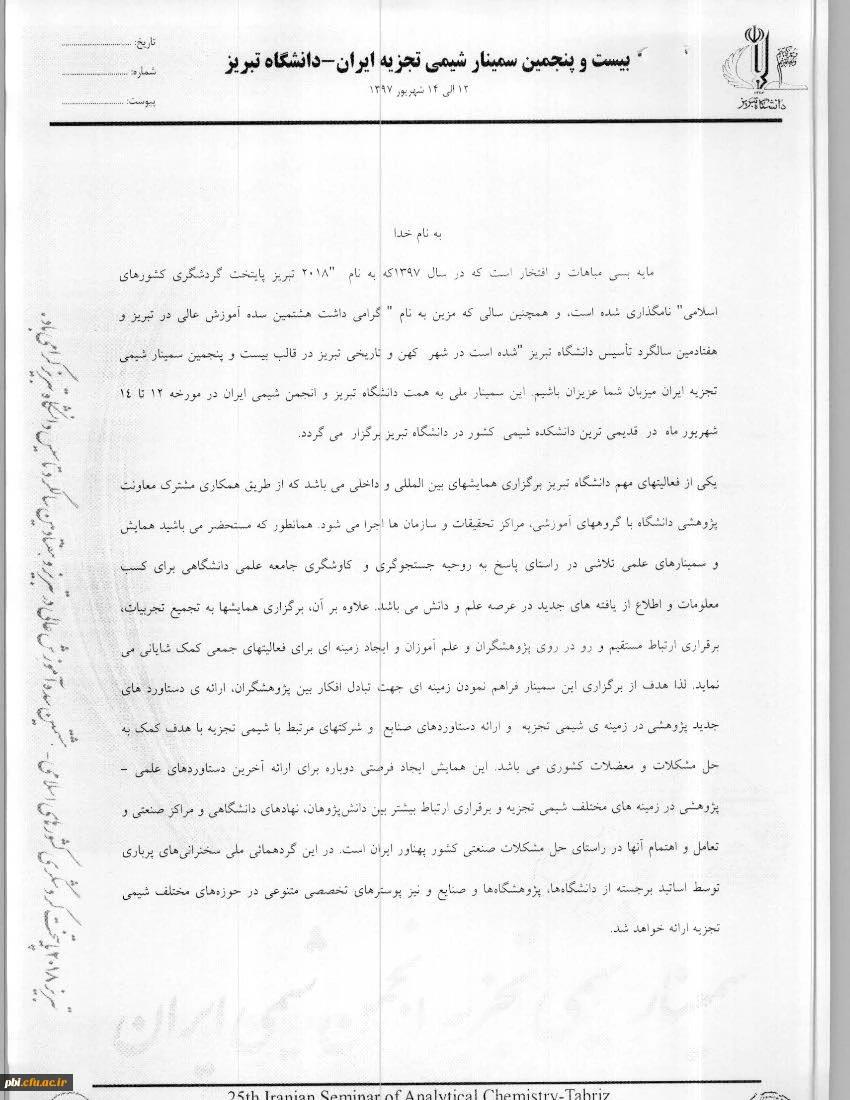 تاریخ: ........................
شماره: ........................
پیوست: ........................
بیست و پنجمین سمینار شیمی تجزیه ایران-دانشگاه تبریز
۱۲ الی ۱۴ شهریور ۱۳۹۷
دانشگاه تبریز
به نام خدا
مایه بسی مباهات و افتخار است که در سال ۱۳۹۷که به نام "۲۰۱۸ تبریز پایتخت گردشگری کشورهای
اسلامی" نامگذاری شده است، و همچنین سالی که مزین به نام " گرامی داشت هشتمین سده آموزش عالی در تبریز و
هفتادمین سالگرد تأسیس دانشگاه تبریز "شده است در شهر کهن و تاریخی تبریز در قالب بیست و پنجمین سمینار شیمی
تجزیه ایران میزبان شما عزیزان باشیم. این سمینار ملی به همت دانشگاه تبریز و انجمن شیمی ایران در مورخه ۱۲ تا ۱۴
شهریور ماه در قدیمی ترین دانشکده شیمی کشور در دانشگاه تبریز برگزار می گردد.
یکی از فعالیتهای مهم دانشگاه تبریز برگزاری همایشهای بین المللی و داخلی می باشد که از طریق همکاری مشترک معاونت
پژوهشی دانشگاه با گروههای آموزشی، مراکز تحقیقات و سازمان ها اجرا می شود. همانطور که مستحضر می باشید همایش
و سمینارهای علمی تلاشی در راستای پاسخ به روحیه جستجوگری و کاوشگری جامعه علمی دانشگاهی برای کسب
معلومات و اطلاع از یافته های جدید در عرصه علم و دانش می باشد. علاوه بر آن، برگزاری همایشها به تجمیع تجربیات،
برقراری ارتباط مستقیم و رو در روی پژوهشگران و علم آموزان و ایجاد زمینه ای برای فعالیتهای جمعی کمک شایانی می
نماید. لذا هدف از برگزاری این سمینار فراهم نمودن زمینه ای جهت تبادل افکار بین پژوهشگران، ارائه ی دستاورد های
جدید پژوهشی در زمینه ی شیمی تجزیه و ارائه دستاوردهای صنایع و شرکتهای مرتبط با شیمی تجزیه با هدف کمک به
حل مشکلات و معضلات کشوری می باشد. این همایش ایجاد فرصتی دوباره برای ارائه آخرین دستاوردهای علمی -
پژوهشی در زمینه های مختلف شیمی تجزیه و برقراری ارتباط بیشتر بین دانش‌پژوهان، نهادهای دانشگاهی و مراکز صنعتی و
تعامل و اهتمام آنها در راستای حل مشکلات صنعتی کشور پهناور ایران است. در این گردهمائی ملی سخنرانی‌های پرباری
توسط اساتید برجسته از دانشگاه‌ها، پژوهشگاه‌ها و صنایع و نیز پوسترهای تخصصی متنوعی در حوزه‌های مختلف شیمی
تجزیه ارائه خواهد شد.
تبریز ۲۰۱۸ پایتخت گردشگری کشورهای اسلامی - هشتمین سده آموزش عالی در تبریز و هفتادمین سالگرد تاسیس دانشگاه تبریز گرامی باد.
انجمن شیمی ایران
25th Iranian Seminar of Analytical Chemistry-Tabriz
pbi.cfu.ac.ir